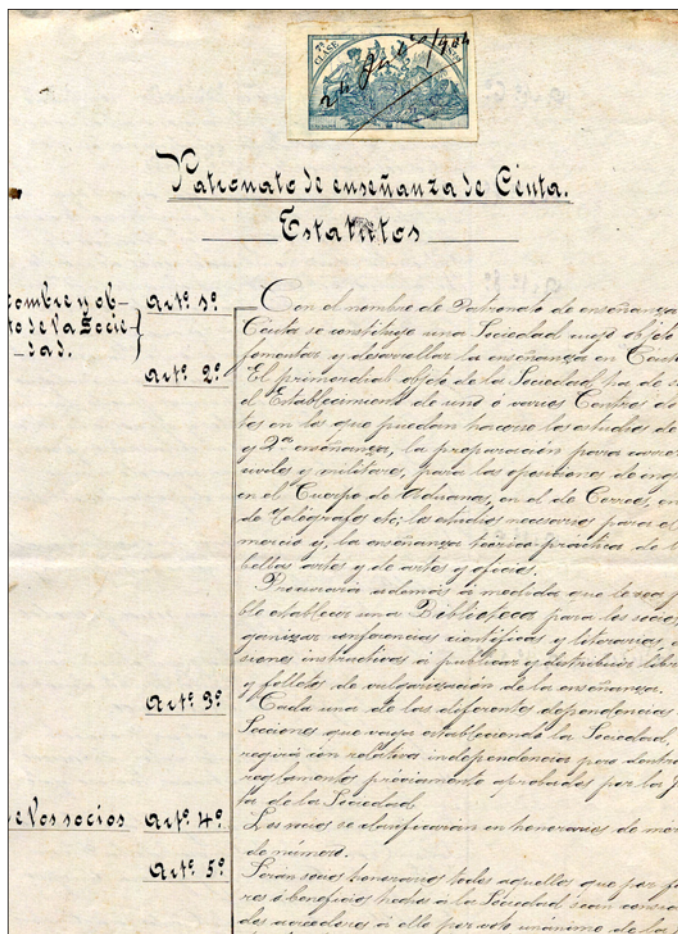 7ª CLASE
24 Julio 1904
Patronato de enseñanza de Ceuta.
Estatutos
ombre y ob-
to de la Socie-
dad.
Artº. 1º
Con el nombre de Patronato de enseñanza
Ceuta se constituye una Sociedad cuyo objeto
fomentar y desarrollar la enseñanza en Ceuta
Artº. 2º
El primordial objeto de la Sociedad ha de s
el Establecimiento de uno ó varios Centros de
tos en los que puedan hacerse los estudios de
y 2ª enseñanza, la preparación para carre
civiles y militares, para las oposiciones de ingr
en el Cuerpo de Aduanas, en el de Correos, en
de Telégrafos etc; los estudios necesarios para el
mercio y, la enseñanza teórico-práctica de l
bellas artes y de artes y oficios.
Procurará además á medida que le sea p
ble establecer una Biblioteca para los socios,
ganizar conferencias científicas y literarias, e
siones instructivas á publicar y distribuir libr
y folletos de vulgarización de la enseñanza.
Artº. 3º
Cada una de las diferentes dependencias
Secciones que vaya estableciendo la Sociedad,
regirá con relativa independencia pero dentro
reglamentos préviamente aprobados por la J
ta de la Sociedad
e los socios
Artº. 4º
Los socios se clasificarán en honorarios de mér
de número.
Artº. 5º
Serán socios honorarios todos aquellos que por fa
res ó beneficios hechos á la Sociedad sean consi
dos acreedores á ello por voto unánime de la